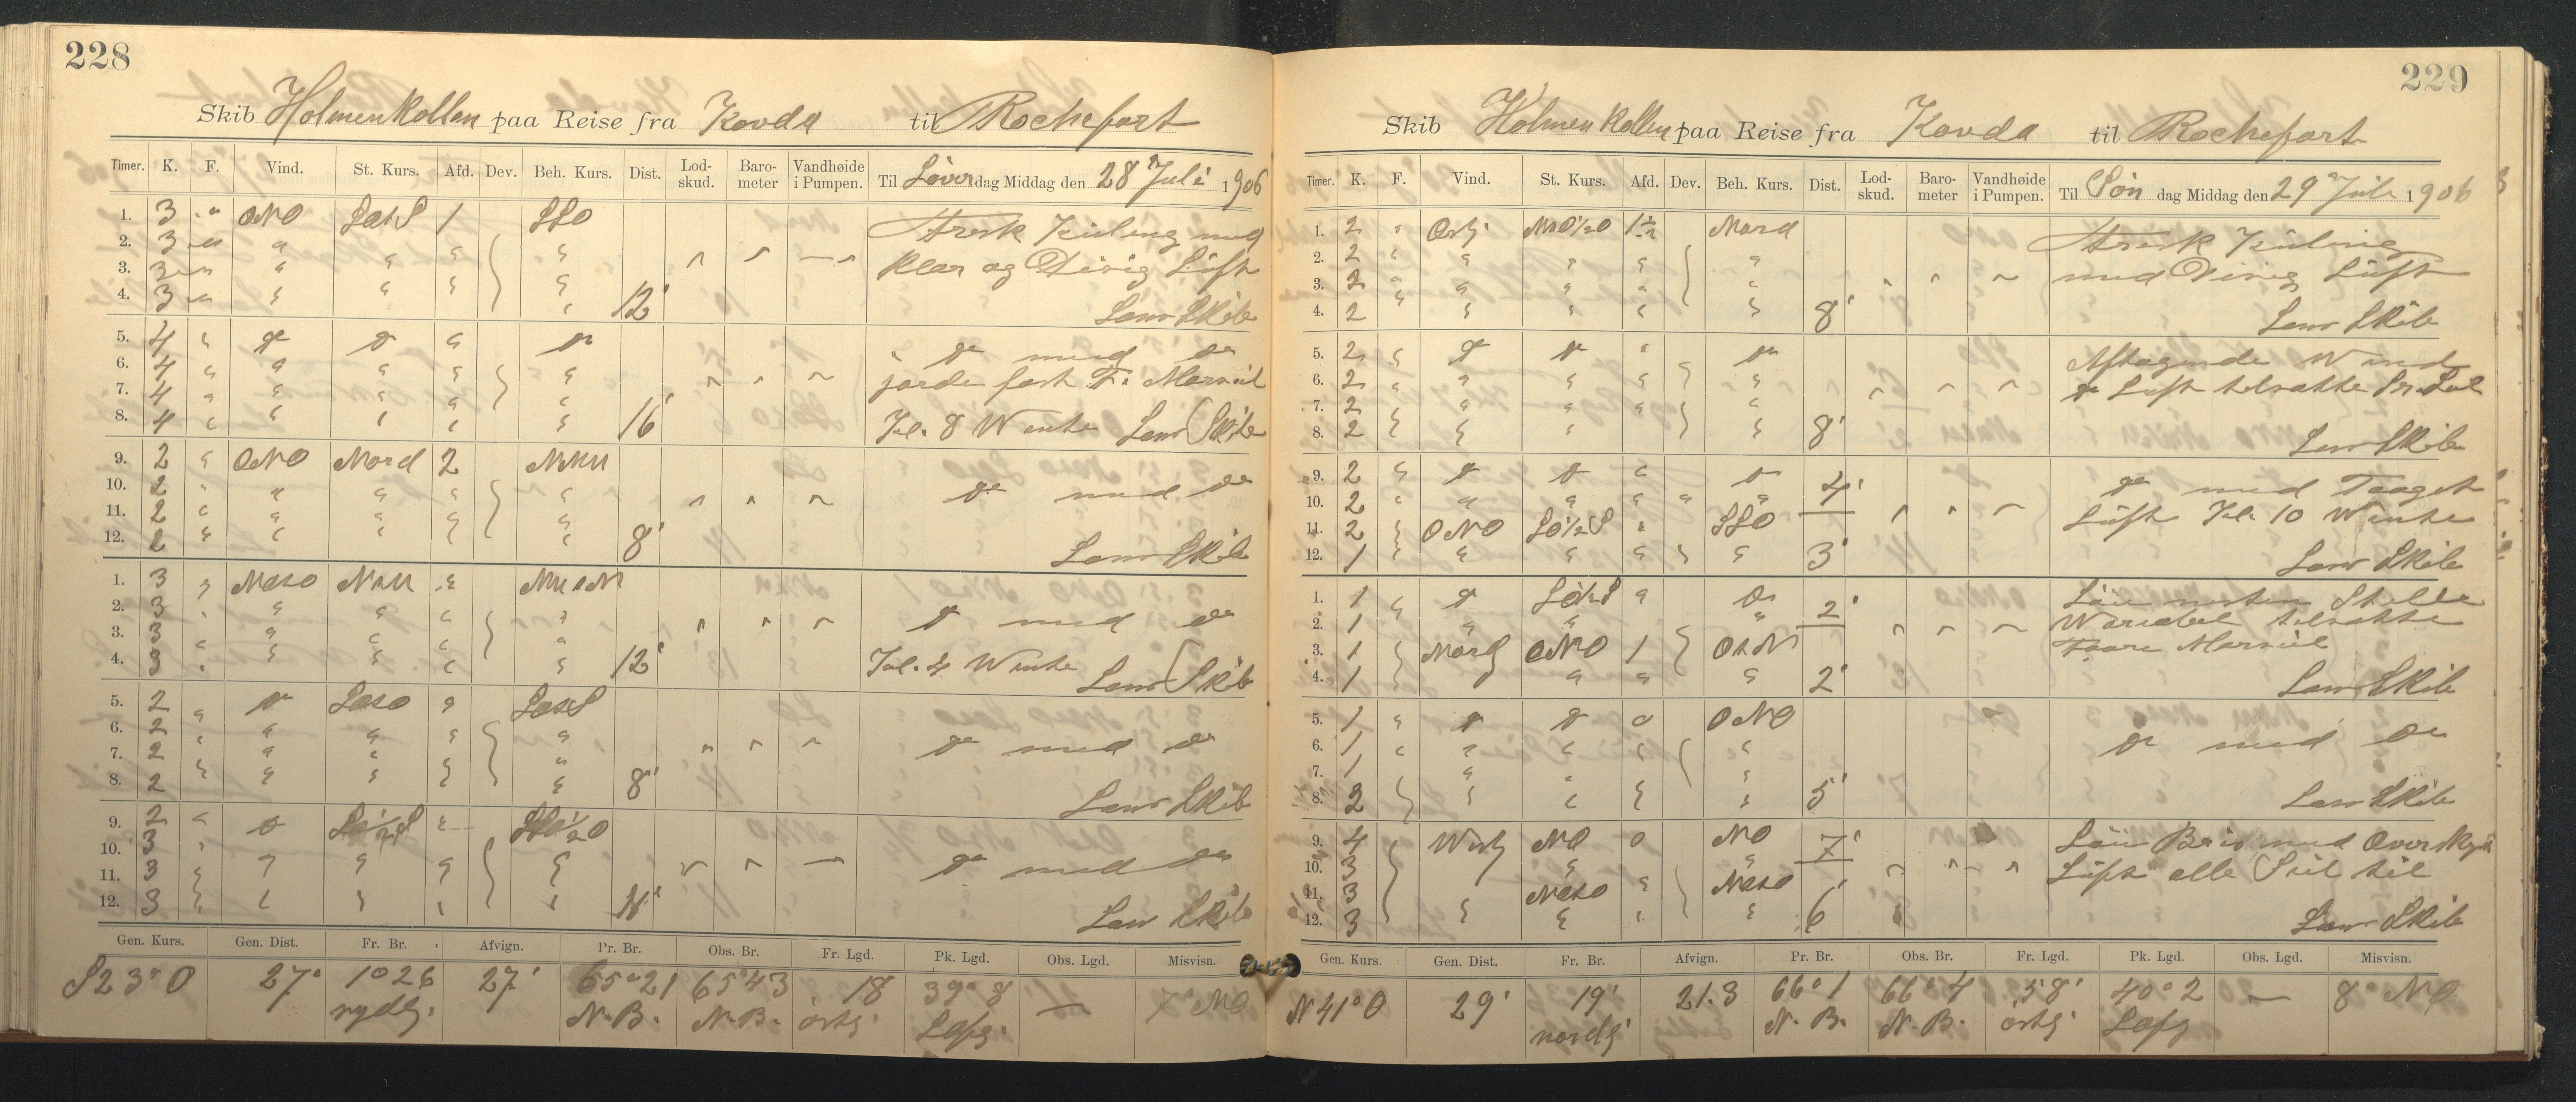 228
Skib Holmenkollen paa Reise fra Kovda til Rochefort
Timer. K. F. Vind. St. Kurs. Afd. Dev. Beh. Kurs. Dist. Lod-skud. Baro-meter Vandhøide i Pumpen. Til Löverdag Middag den 28 Juli 1906
1. 3 " ONO SOtS 1 SSO
2. 3 " " " " "
3. 3 " " " " "
4. 3 " " " " " 12'
Frisk Kuling med
klar og Disig Luft
Lens Skib
5. 4 " do do " do
6. 4 " " " " "
7. 4 " " " " "
8. 4 " " " " " 16'
do med do
gjorde fast F. Mersseil
Kl. 8 Vente Lens Skib
9. 2 " ONO Nord 2 NNW
10. 2 " " " " "
11. 2 " " " " "
12. 2 " " " " " 8'
do med do
Lens Skib
1. 3 " NOtO NNW " NWtN
2. 3 " " " " "
3. 3 " " " " "
4. 3 " " " " " 12'
do med do
Kl. 4 Vente Lens Skib
5. 2 " do SOtO " SOtS
6. 2 " " " " "
7. 2 " " " " "
8. 2 " " " " " 8'
do med do
Lens Skib
9. 2 " do SO½S " SSO½O
10. 3 " " " " "
11. 3 " " " " "
12. 3 " " " " " 11'
do med do
Lens Skib
Gen. Kurs. Gen. Dist. Fr. Br. Afvign. Pr. Br. Obs. Br. Fr. Lgd. Pk. Lgd. Obs. Lgd. Misvisn.
S23°O 27' 1°26 27' 65°21 65°43 18 39°8 — 7° NO
sydlg. N.B. N.B. östg.
229
Skib Holmenkollen paa Reise fra Kovda til Rochefort
Timer. K. F. Vind. St. Kurs. Afd. Dev. Beh. Kurs. Dist. Lod-skud. Baro-meter Vandhøide i Pumpen. Til Søndag Middag den 29 Juli 1906
1. 2 " Ostg. NNO½O 1½ Nord
2. 2 " " " " "
3. 2 " " " " "
4. 2 " " " " " 8'
Frisk Kuling
med Disig Luft
Lens Skib
5. 2 " do do " do
6. 2 " " " " "
7. 2 " " " " "
8. 2 " " " " " 8'
Aftagende Wind
do Luft tilsatte
Lens Skib
9. 2 " do do " do 4'
10. 2 " " " " "
11. 2 " ONO SO½S " SSO
12. 1 " " " " " 3'
do med Taaget
Luft Kl. 10 Vente
Lens Skib
1. 1 " do SO½S " do 2'
2. 1 " " "
3. 1 " Nordg ONO 1 OtN
4. 1 " " " " 2'
Löi nesten Stille
Variabel tilsatte
Store Mersseil
Lens Skib
5. 1 " do do 0 ONO
6. 1 " " " " "
7. 1 " " " "
8. 2 " " " " " 5'
do med do
Lens Skib
9. 4 Westg NO 0 NO 7'
10. 3 " "
11. 3 NOtO " NOtO
12. 3 " " " " 6'
Löi Bris med Overskyet
Luft alle Seil til
Lens Skib
Gen. Kurs. Gen. Dist. Fr. Br. Afvign. Pr. Br. Obs. Br. Fr. Lgd. Pk. Lgd. Obs. Lgd. Misvisn.
N41°O 29' 19' 21.3 66°1 66°4 58' 40°2 — 8° NO
nordg N.B. N.B. östg